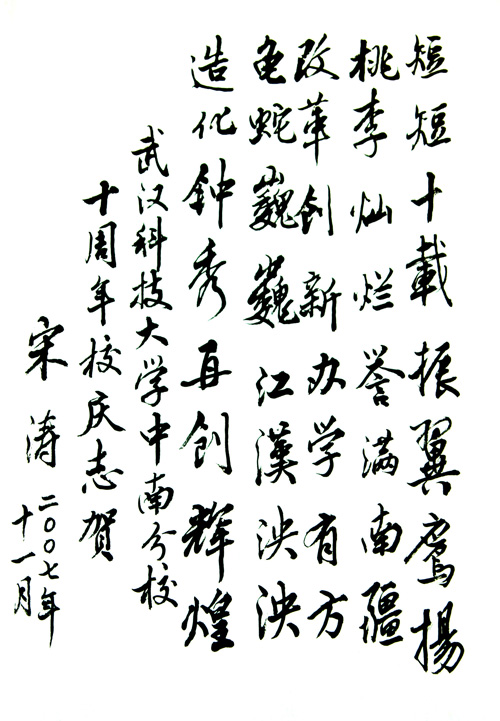 短短十載振翼鹰揚
桃李灿烂誉满南疆
改革创新办学有方
龟蛇巍巍江漢泱泱
造化钟秀再创辉煌
武汉科技大学中南分校
十周年校庆志贺
宋涛
二〇〇七年
十一月